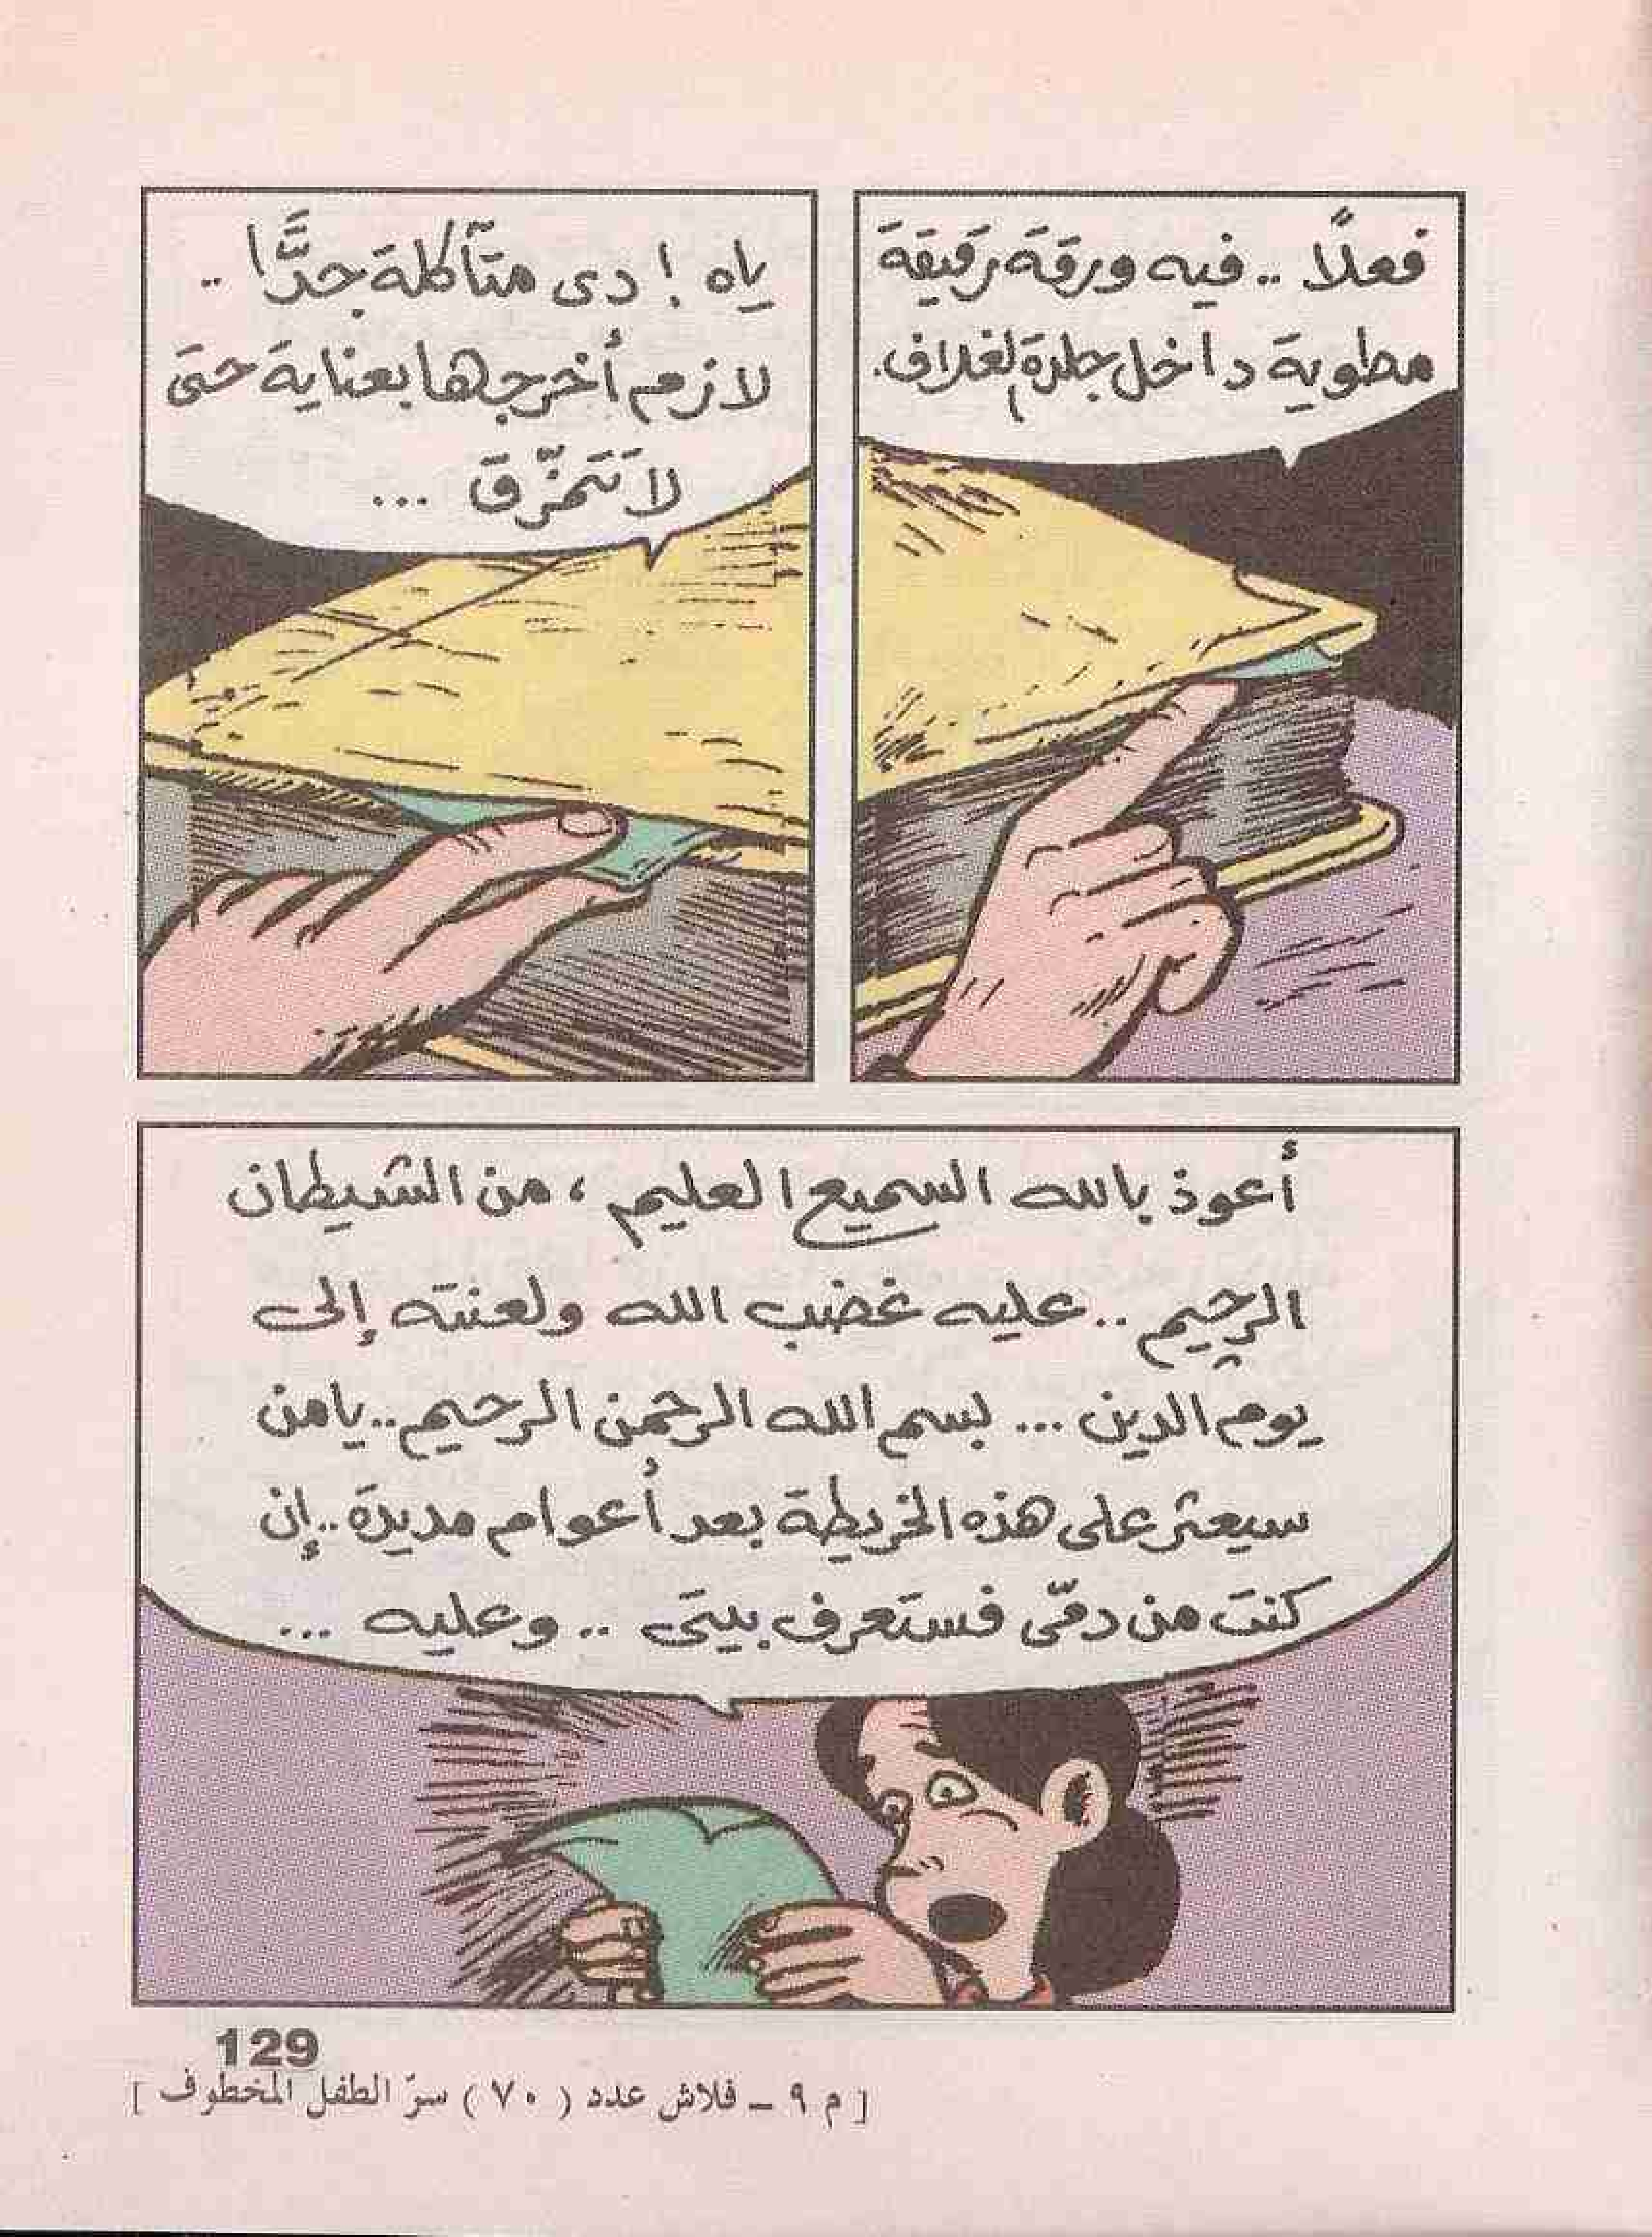 فعلاً .. فيه ورقة رقيقة
مطوية داخل جلدة الغلاف.
ياه ! دى متآكلة جدًّا ..
لازم أخرجها بعناية حتى
لا تَتمزّق ...
أعوذ بالله السميع العليم ، من الشيطان
الرجيم .. عليه غضب الله ولعنته إلى
يوم الدين ... بسم الله الرحمن الرحيم .. يا من
سيعثر على هذه الخريطة بعد أعوام مديدة .. إن
كنت من دمّى فستعرف بيتى .. وعليه ...
129
[ م ٩ – فلاش عدد ( ٧٠ ) سرّ الطفل المخطوف ]